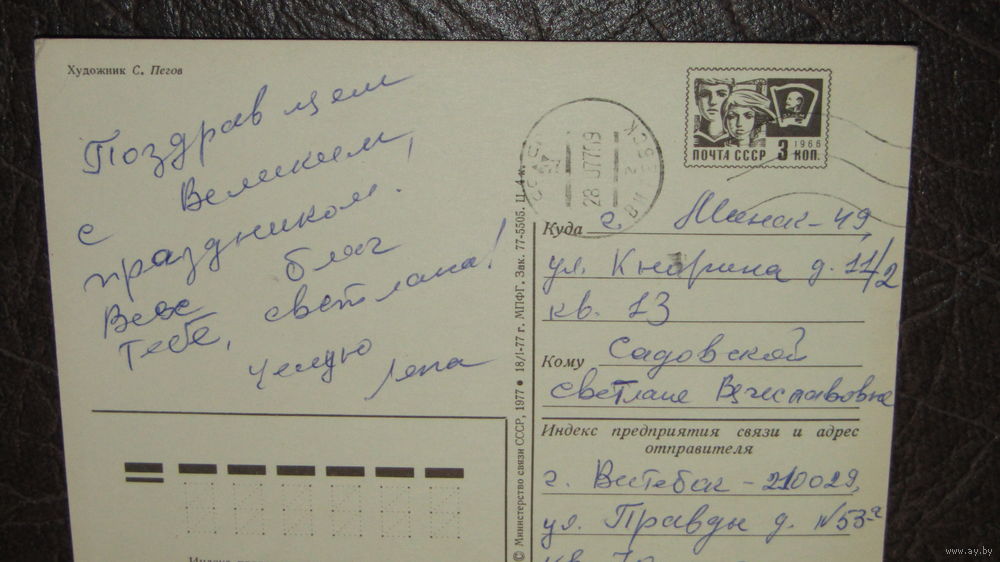 Художник С. Пегов
Поздравляем
с Великим,
праздником.
Всех благ
тебе, Светлана!
Целую
Лена
ПОЧТА СССР 3 КОП.
1966
28 0777 09
Куда г. Минск-49,
ул. Кнорина д. 11/2
кв. 13
Кому Садовской
Светлане Вячеславовне
Индекс предприятия связи и адрес
отправителя
г. Витебск - 210029,
ул. Правды д. №53а
кв.
© Министерство связи СССР, 1977 ● 18/I-77 г. МПФГ. Зак. 77-5505. Ц. 4 к.
www.ay.by